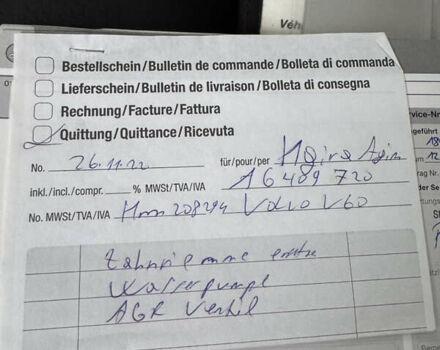 Véh
Bestellschein/Bulletin de commande/Bolleta di commanda
Lieferschein/Bulletin de livraison/Bolleta di consegna
Rechnung/Facture/Fattura
Quittung/Quittance/Ricevuta
No. 26.11.22 für/pour/per
16489720
inkl./incl./compr. % MWSt/TVA/IVA
No. MWSt/TVA/IVA 208294 Volvo V60
Zahnriemme
Wasserpumpe
AGR Ventil